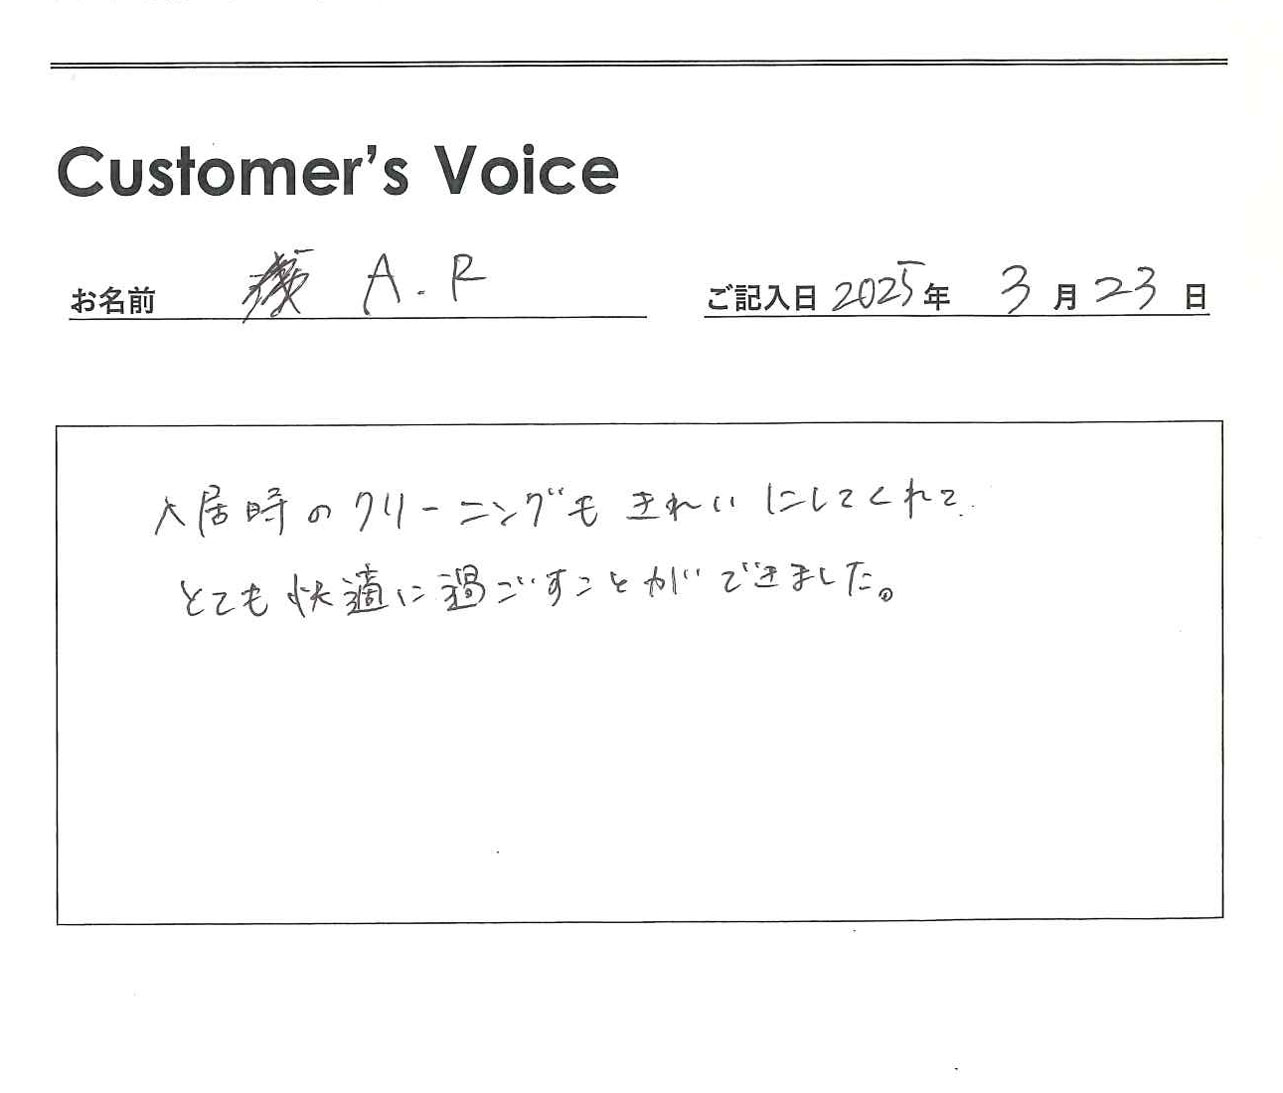 Customer's Voice
お名前 A.R ご記入日 2025年 3月23日
入居時のクリーニングもきれいにしてくれて
とても快適に過ごすことができました。